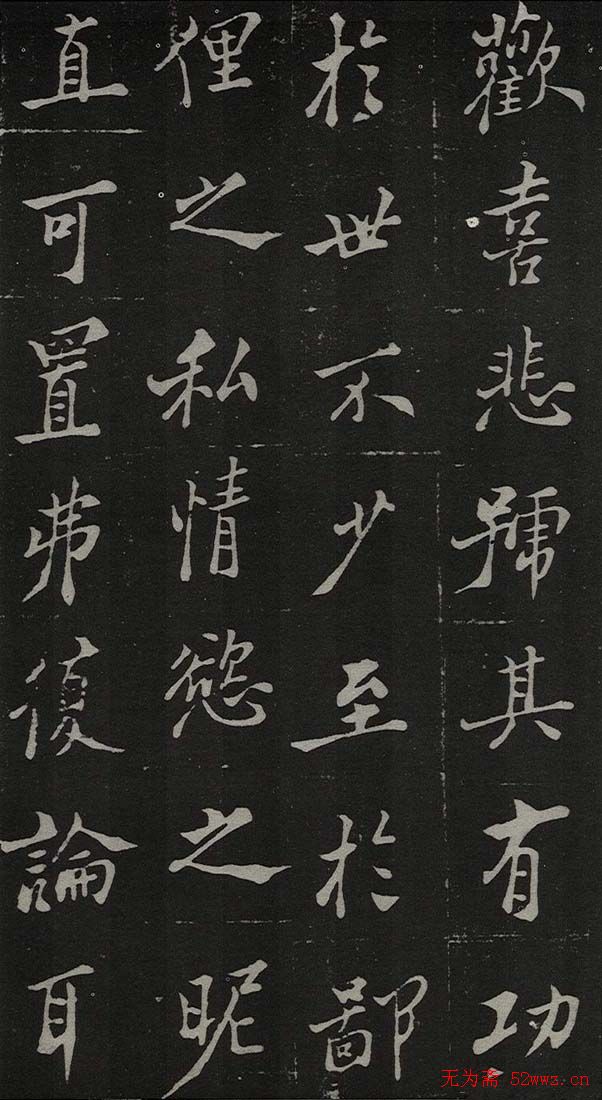 歡喜悲號其有功
於世不少至於鄙
俚之私情慾之昵
直可置弗復論耳
无为斋 52wwz.cn